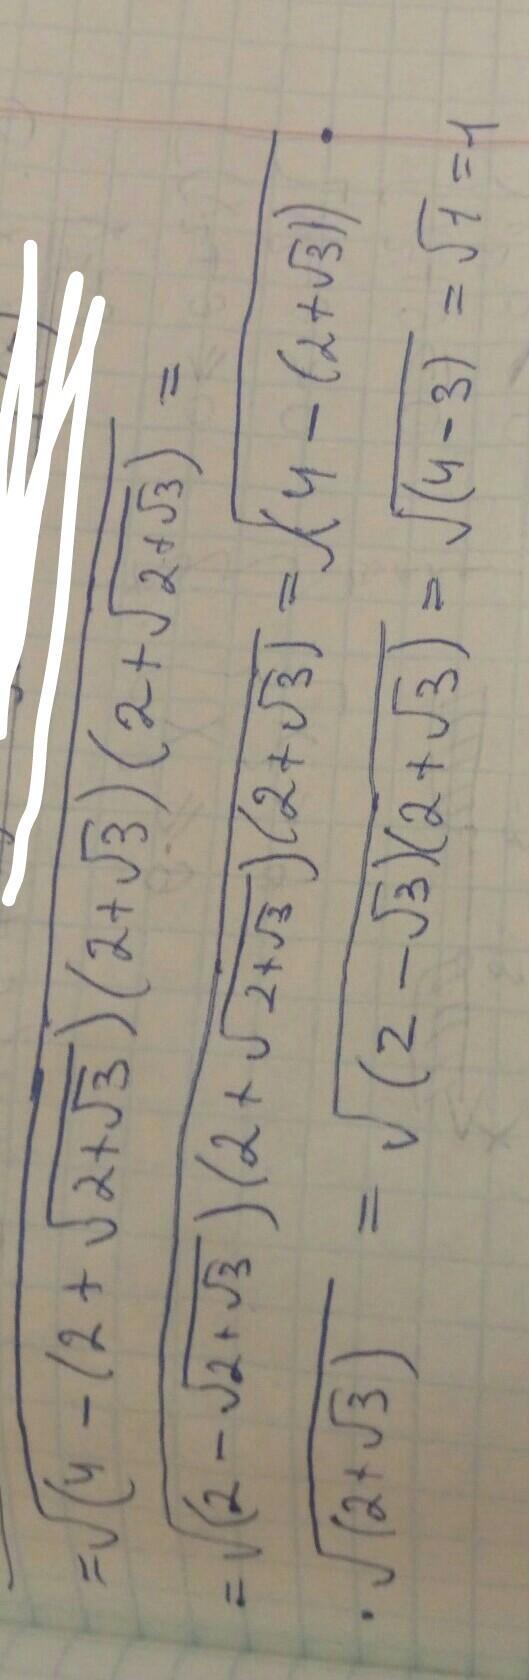 =√(4-(2+√2+√3)(2+√3)(2+√2+√3) =
=√(2-√2+√3)(2+√2+√3)(2+√3) = √(4-(2+√3)) ·
·√(2+√3) = √(2-√3)(2+√3) = √(4-3) = √1 = 1